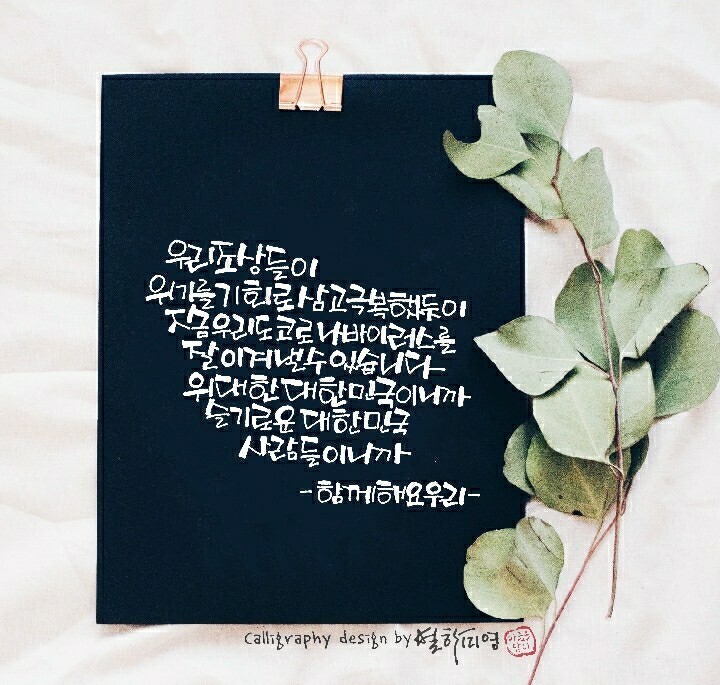 우리조상들이
위기를기회로삼고극복했듯이
지금우리도코로나바이러스를
잘이겨낼수있습니다
위대한대한민국이니까
슬기로운대한민국
사람들이니까
-함께해요우리-
Calligraphy design by